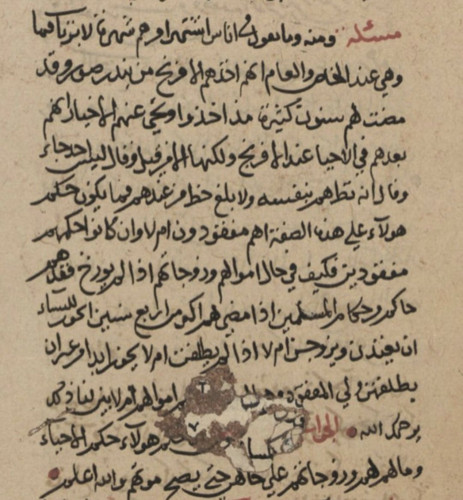 مسئلة ومنه وما تقول في اناس اشتهر امرهم شهرة لا نرتاب فيها
وهي عند الخاص والعام انهم اخذهم الافرنج من بندر صور وقد
مضت لهم سنون كثيرة مذ اخذوا ويحي عنهم الاخبار انهم
بعدهم في الاحيا عند الافرنج ولكنها الامر قبل وقال ليس احد جاء
وقال انه نظرهم بنفسه ولا بلغ خط من عندهم فما يكون حكم
هولاء على هذه الصفة اهم مفقودون ام لا وان كانوا حكمهم
مفقودين فكيف في حال اموالهم وزوجاتهم اذا لم يورخ فقدهم
حاكم من حكام المسلمين اذا مضى لهم اكثر من اربع سنين ايجوز للنساء
ان يعتدن ويزوجن ام لا اذا لم يطلقن ام لا يجوز ابدا وعن ان
يطلقهن ولي المفقود اموالهم ام لا بين لنا ذلك
يرحمك الله الجواب هولاء حكم الاحياء
ومالهم لهم وزوجاتهم على حالهم حتى يصح موتهم والله اعلم